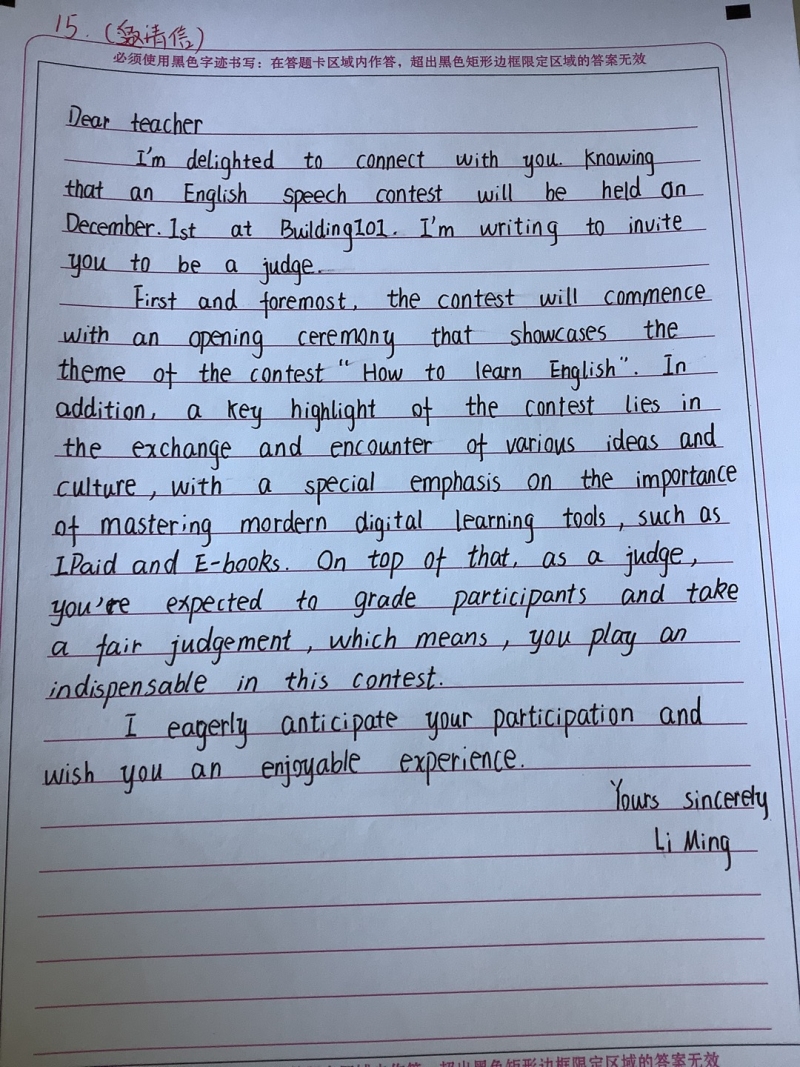 15.(邀请信)
必须使用黑色字迹书写：在答题卡区域内作答，超出黑色矩形边框限定区域的答案无效
Dear teacher
I'm delighted to connect with you. Knowing
that an English speech contest will be held on
December.1st at Building101. I'm writing to invite
you to be a judge.
First and foremost, the contest will commence
with an opening ceremony that showcases the
theme of the contest "How to learn English". In
addition, a key highlight of the contest lies in
the exchange and encounter of various ideas and
culture, with a special emphasis on the importance
of mastering mordern digital learning tools, such as
IPaid and E-books. On top of that, as a judge,
you're expected to grade participants and take
a fair judgement, which means, you play an
indispensable in this contest.
I eagerly anticipate your participation and
wish you an enjoyable experience.
Yours sincerely
Li Ming
超出黑色矩形边框限定区域的答案无效